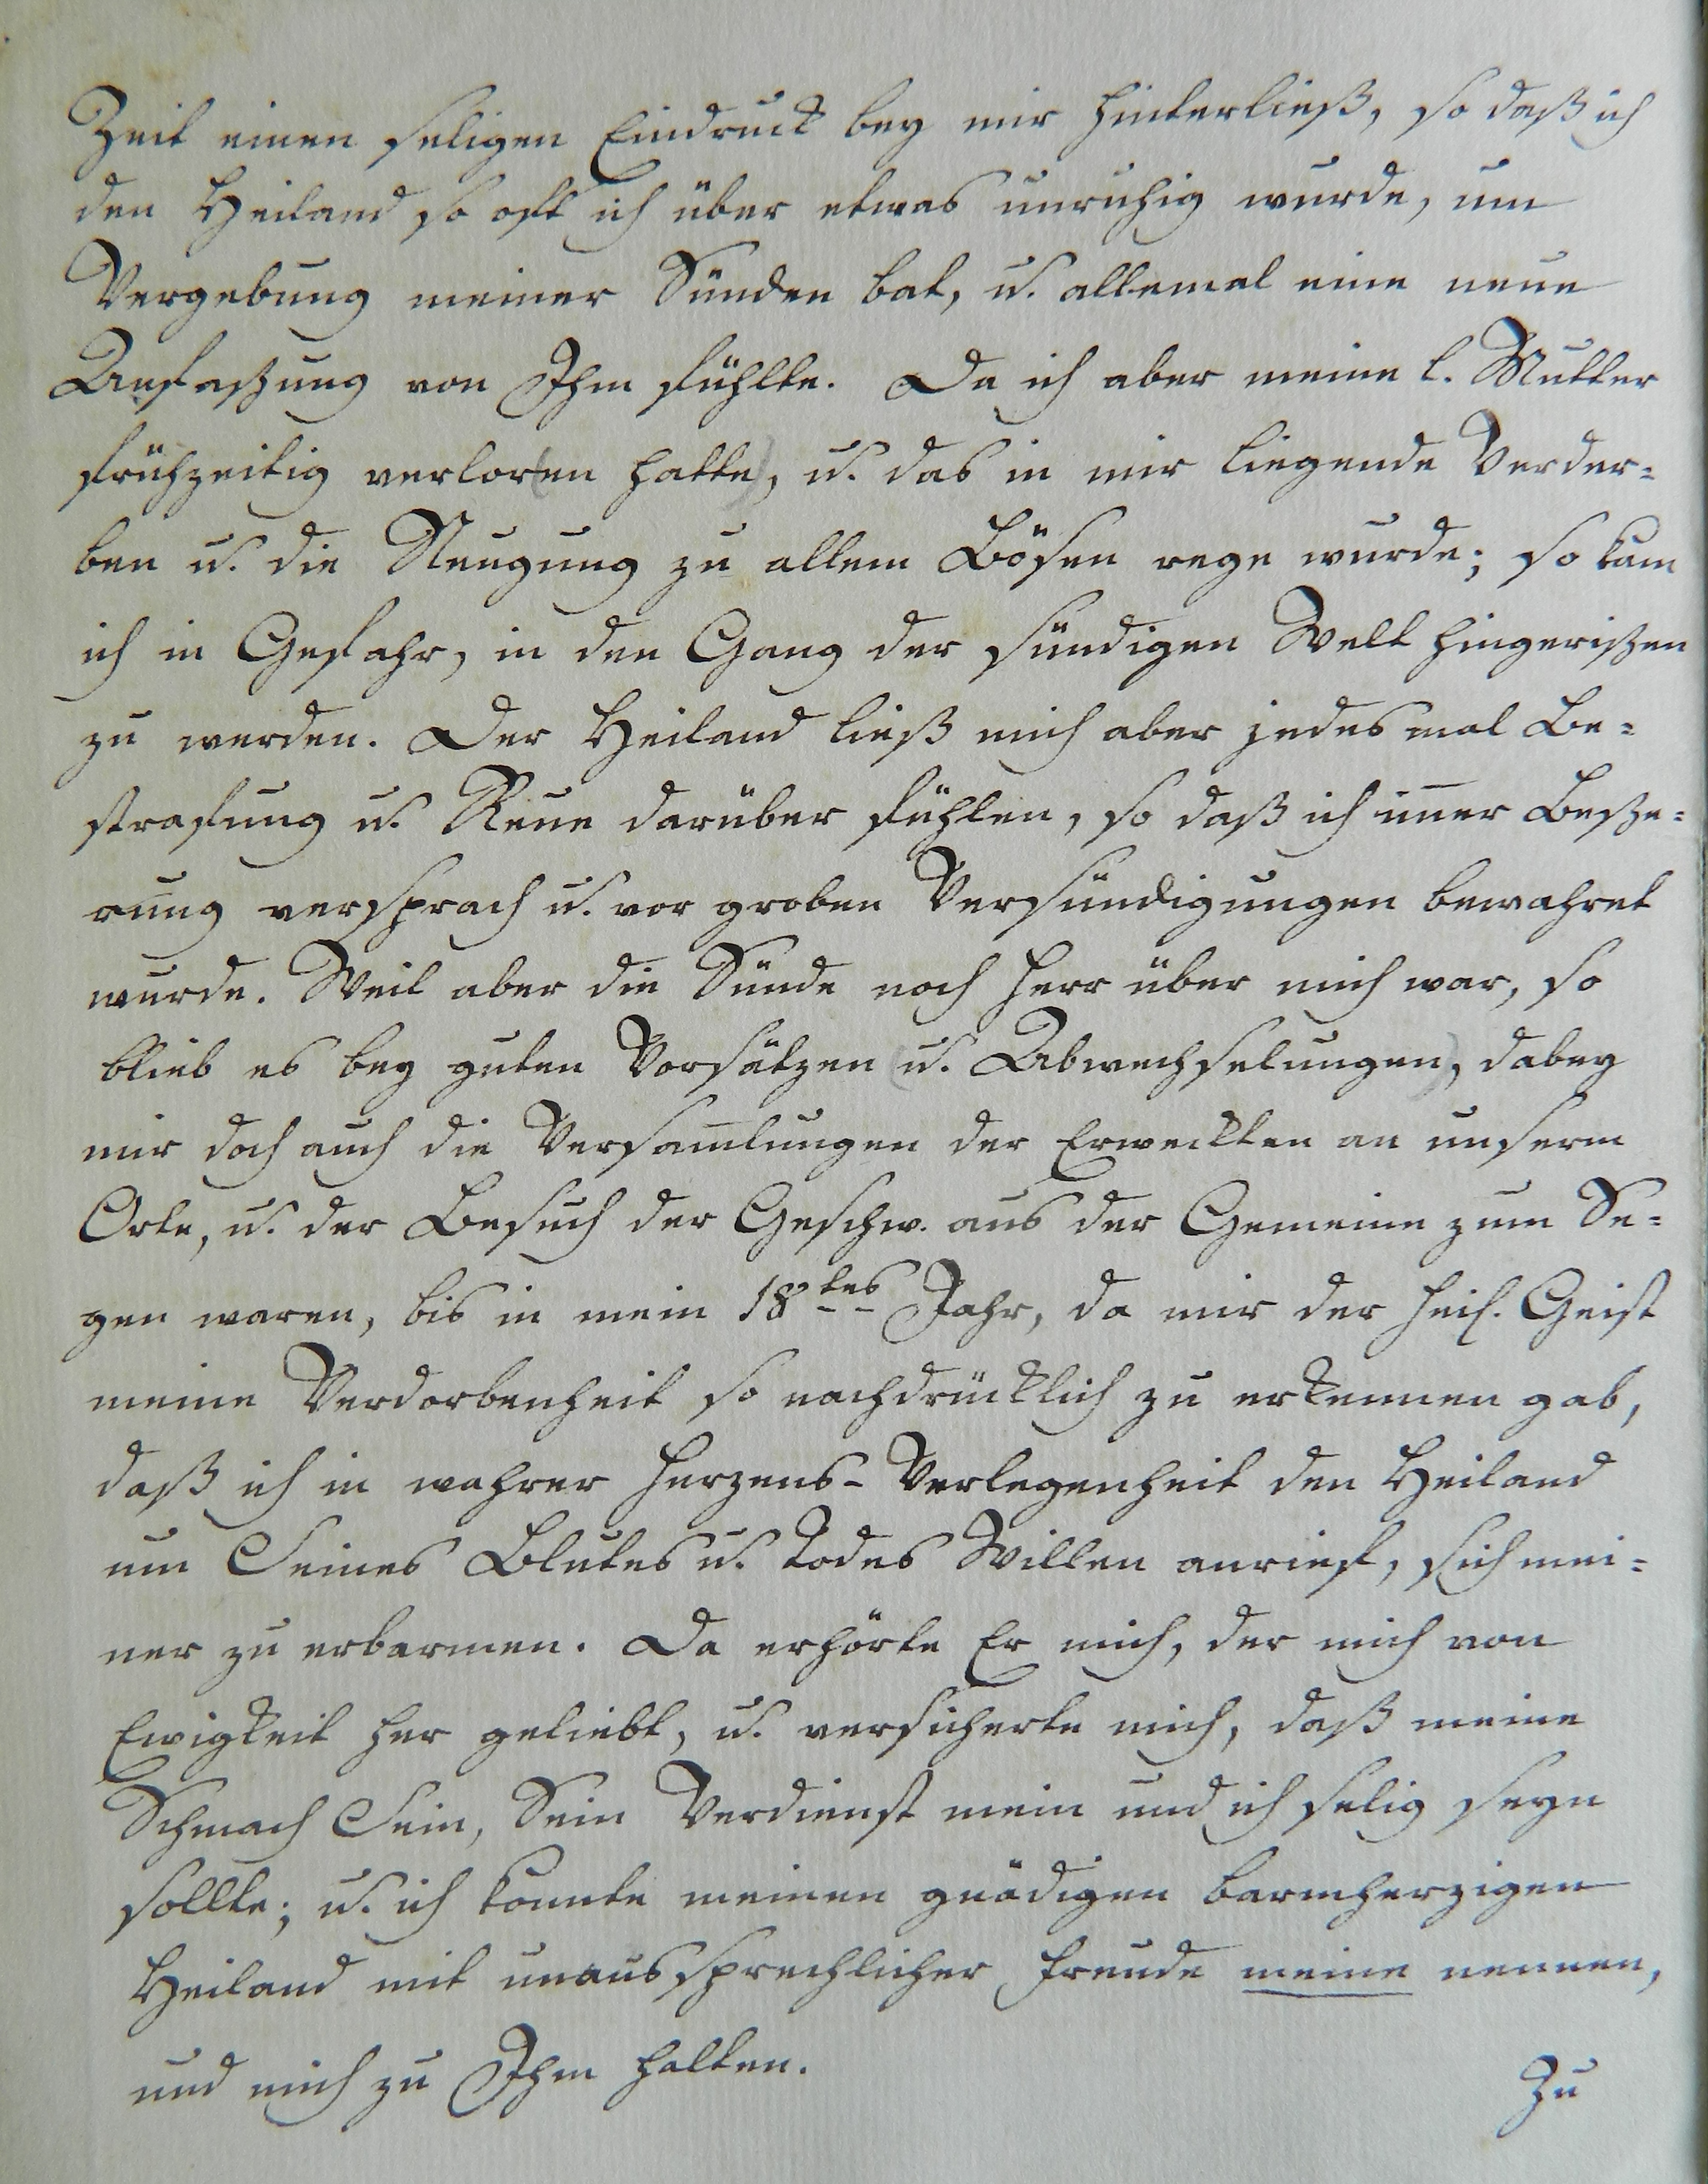 Zeit einen seligen Eindruck bey mir hinterließ, so daß ich
den Heiland so oft ich über etwas unruhig wurde, um
Vergebung meiner Sünden bat, u. allemal eine neue
Anfaßung von Ihm fühlte. Da ich aber meine l. Mutter
frühzeitig verlor(en hatte), u. das in mir liegende Verder=
ben u. die Neugung zu allem Bösen rege wurde; so kam
ich in Gefahr, in den Gang der sündigen Welt hingerißen
zu werden. Der Heiland ließ mich aber jedes mal Be=
strafung u. Reue darüber fühlen, so daß ich im̅er Beße=
rung versprach u. vor groben Versündigungen bewahret
wurde. Weil aber die Sünde noch Herr über mich war, so
blieb es bey guten Vorsätzen (u. Abwechselungen), dabey
mir doch auch die Versam̅lungen der Erweckten an unserm
Orte, u. der Besuch der Geschw. aus der Gemeine zum Se=
gen waren, bis in mein 18tes Jahr, da mir der heil. Geist
meine Verdorbenheit so nachdrücklich zu erkennen gab,
daß ich in wahrer Herzens-Verlegenheit den Heiland
um Seines Blutes u. Todes Willen anrief, sich mei=
ner zu erbarmen. Da erhörte Er mich, der mich von
Ewigkeit her geliebt, u. versicherte mich, daß meine
Schmach Sein, Sein Verdienst mein und ich selig seyn
sollte; u. ich konnte meinen gnädigen barmherzigen
Heiland mit unaussprechlicher Freude meine nennen,
und mich zu Ihm halten.
Zu